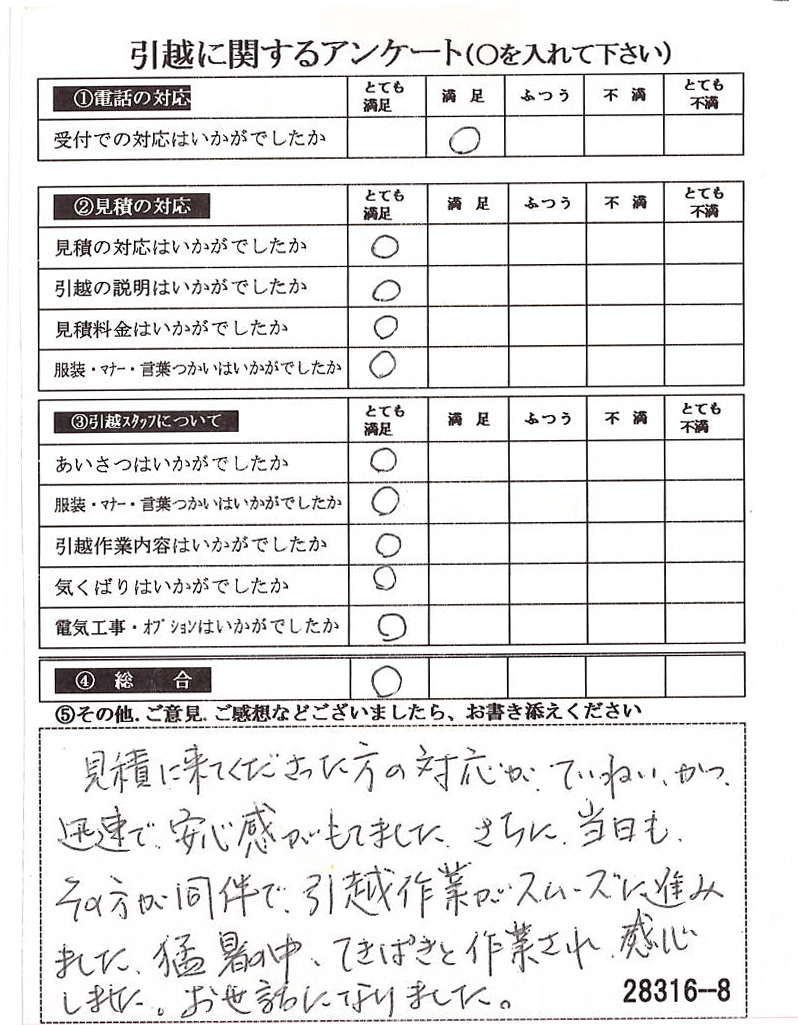 引越に関するアンケート(○を入れて下さい)
①電話の対応 とても満足 満足 ふつう 不満 とても不満
受付での対応はいかがでしたか ○
②見積の対応 とても満足 満足 ふつう 不満 とても不満
見積の対応はいかがでしたか ○
引越の説明はいかがでしたか ○
見積料金はいかがでしたか ○
服装・マナー・言葉つかいはいかがでしたか ○
③引越スタッフについて とても満足 満足 ふつう 不満 とても不満
あいさつはいかがでしたか ○
服装・マナー・言葉つかいはいかがでしたか ○
引越作業内容はいかがでしたか ○
気くばりはいかがでしたか ○
電気工事・オプションはいかがでしたか ○
④ 総合 ○
⑤その他.ご意見.ご感想などございましたら、お書き添えください
見積に来てくださった方の対応が、ていねい、かつ、
迅速で、安心感がもてました。さらに、当日も、
その方が同伴で、引越作業がスムーズに進み
ました。猛暑の中、てきぱきと作業され、感心
しました。お世話になりました。
28316--8